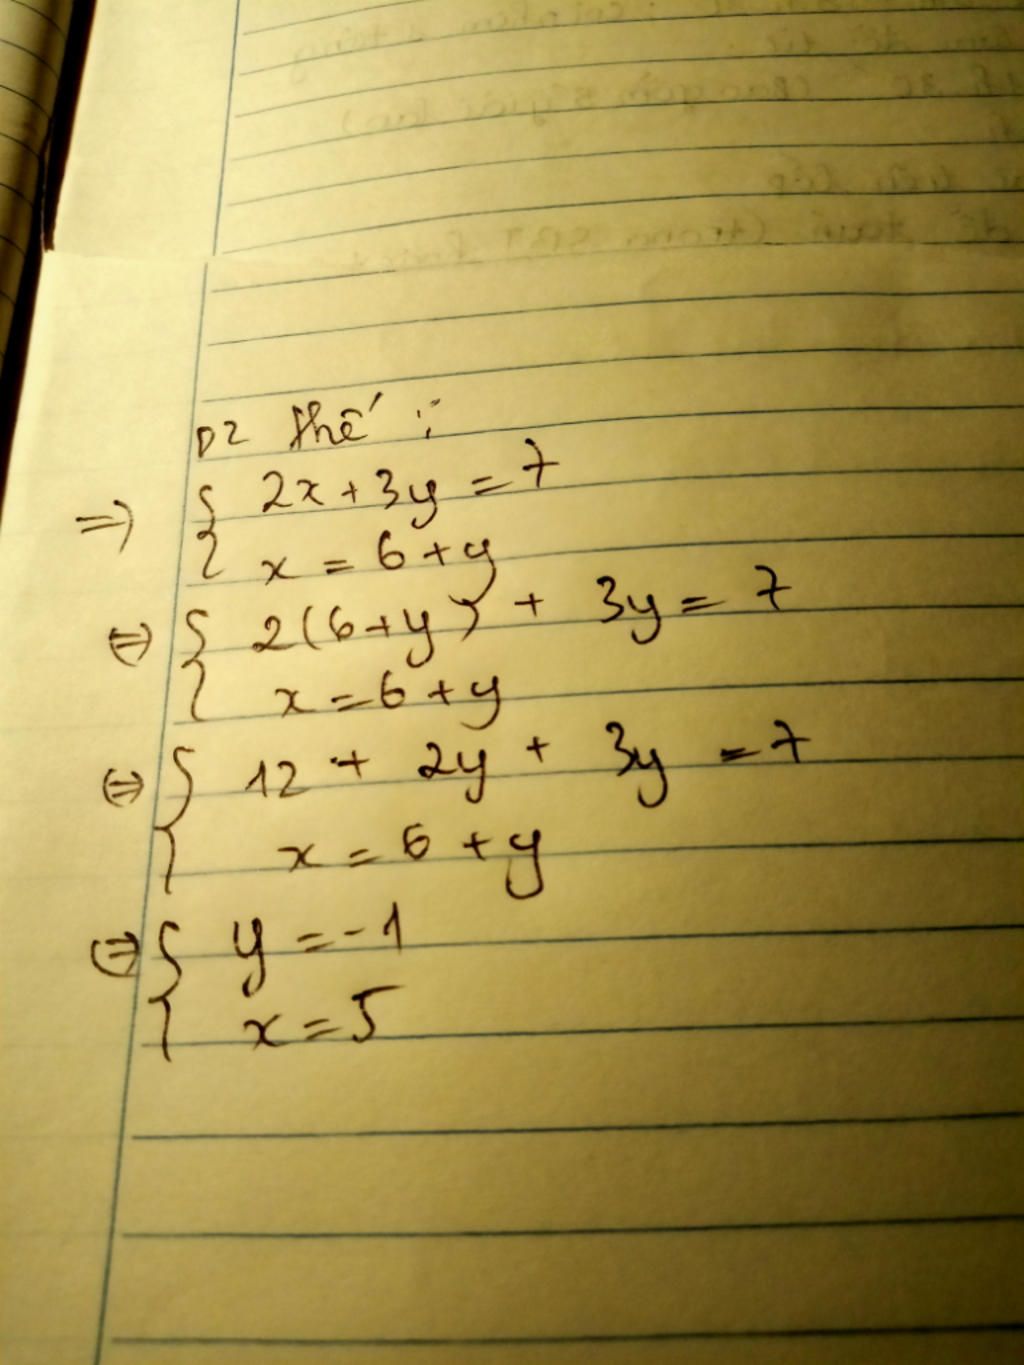 D2 thế :
=) { 2x + 3y = 7
x = 6 + y
(=) { 2(6+y) + 3y = 7
x = 6 + y
(=) { 12 + 2y + 3y = 7
x = 6 + y
(=) { y = -1
x = 5